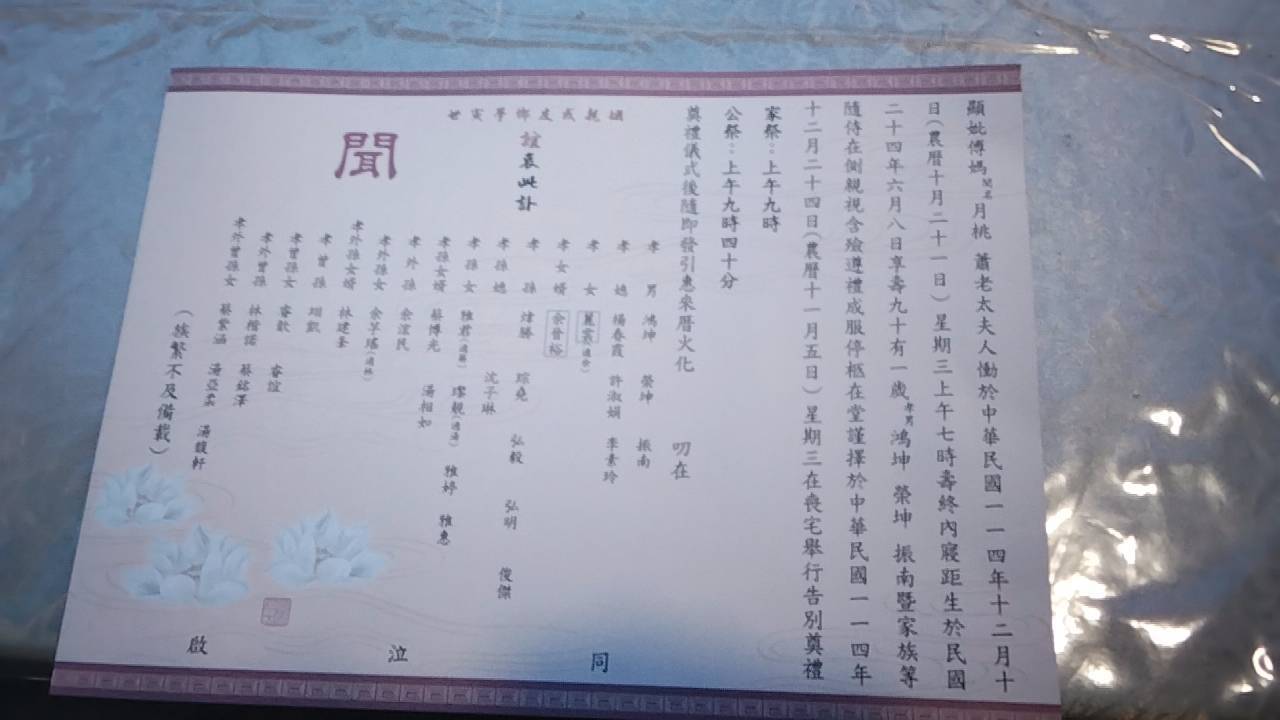 顯妣傅媽閨名月桃 蕭老太夫人慟於中華民國一一四年十二月十
日(農曆十月二十一日)星期三上午七時壽終內寢距生於民國
二十四年六月八日享壽九十有一歲孝男鴻坤 榮坤 振南暨家族等
隨侍在側親視含殮遵禮成服停柩在堂謹擇於中華民國一一四年
十二月二十四日(農曆十一月五日)星期三在喪宅舉行告別奠禮
家祭:上午九時
公祭:上午九時四十分
奠禮儀式後隨即發引惠來厝火化
叨在
姻親戚友鄉學寅世
誼哀此訃
聞
孝男 鴻坤 榮坤 振南
孝媳 楊春霞 許淑娟 李素玲
孝女 麗雲(適余)
孝女婿 余曾裕
孝孫 煒勝 琮堯 弘毅 弘明 俊傑
孝孫媳 沈子琳
孝孫女 雅君 雅婷 雅惠
孝孫女婿 蔡博光 湯相如
孝外孫 余浤民
孝外孫女 余芊瑤(適林)
孝外孫女婿 林建荃
孝曾孫 翊凱
孝曾孫女 睿歆 睿誼
孝外曾孫 林楷諾 蔡銘澤
孝外曾孫女 蔡絜涵 湯亞柔 湯馥軒
(族繁不及備載)
同 泣 啟